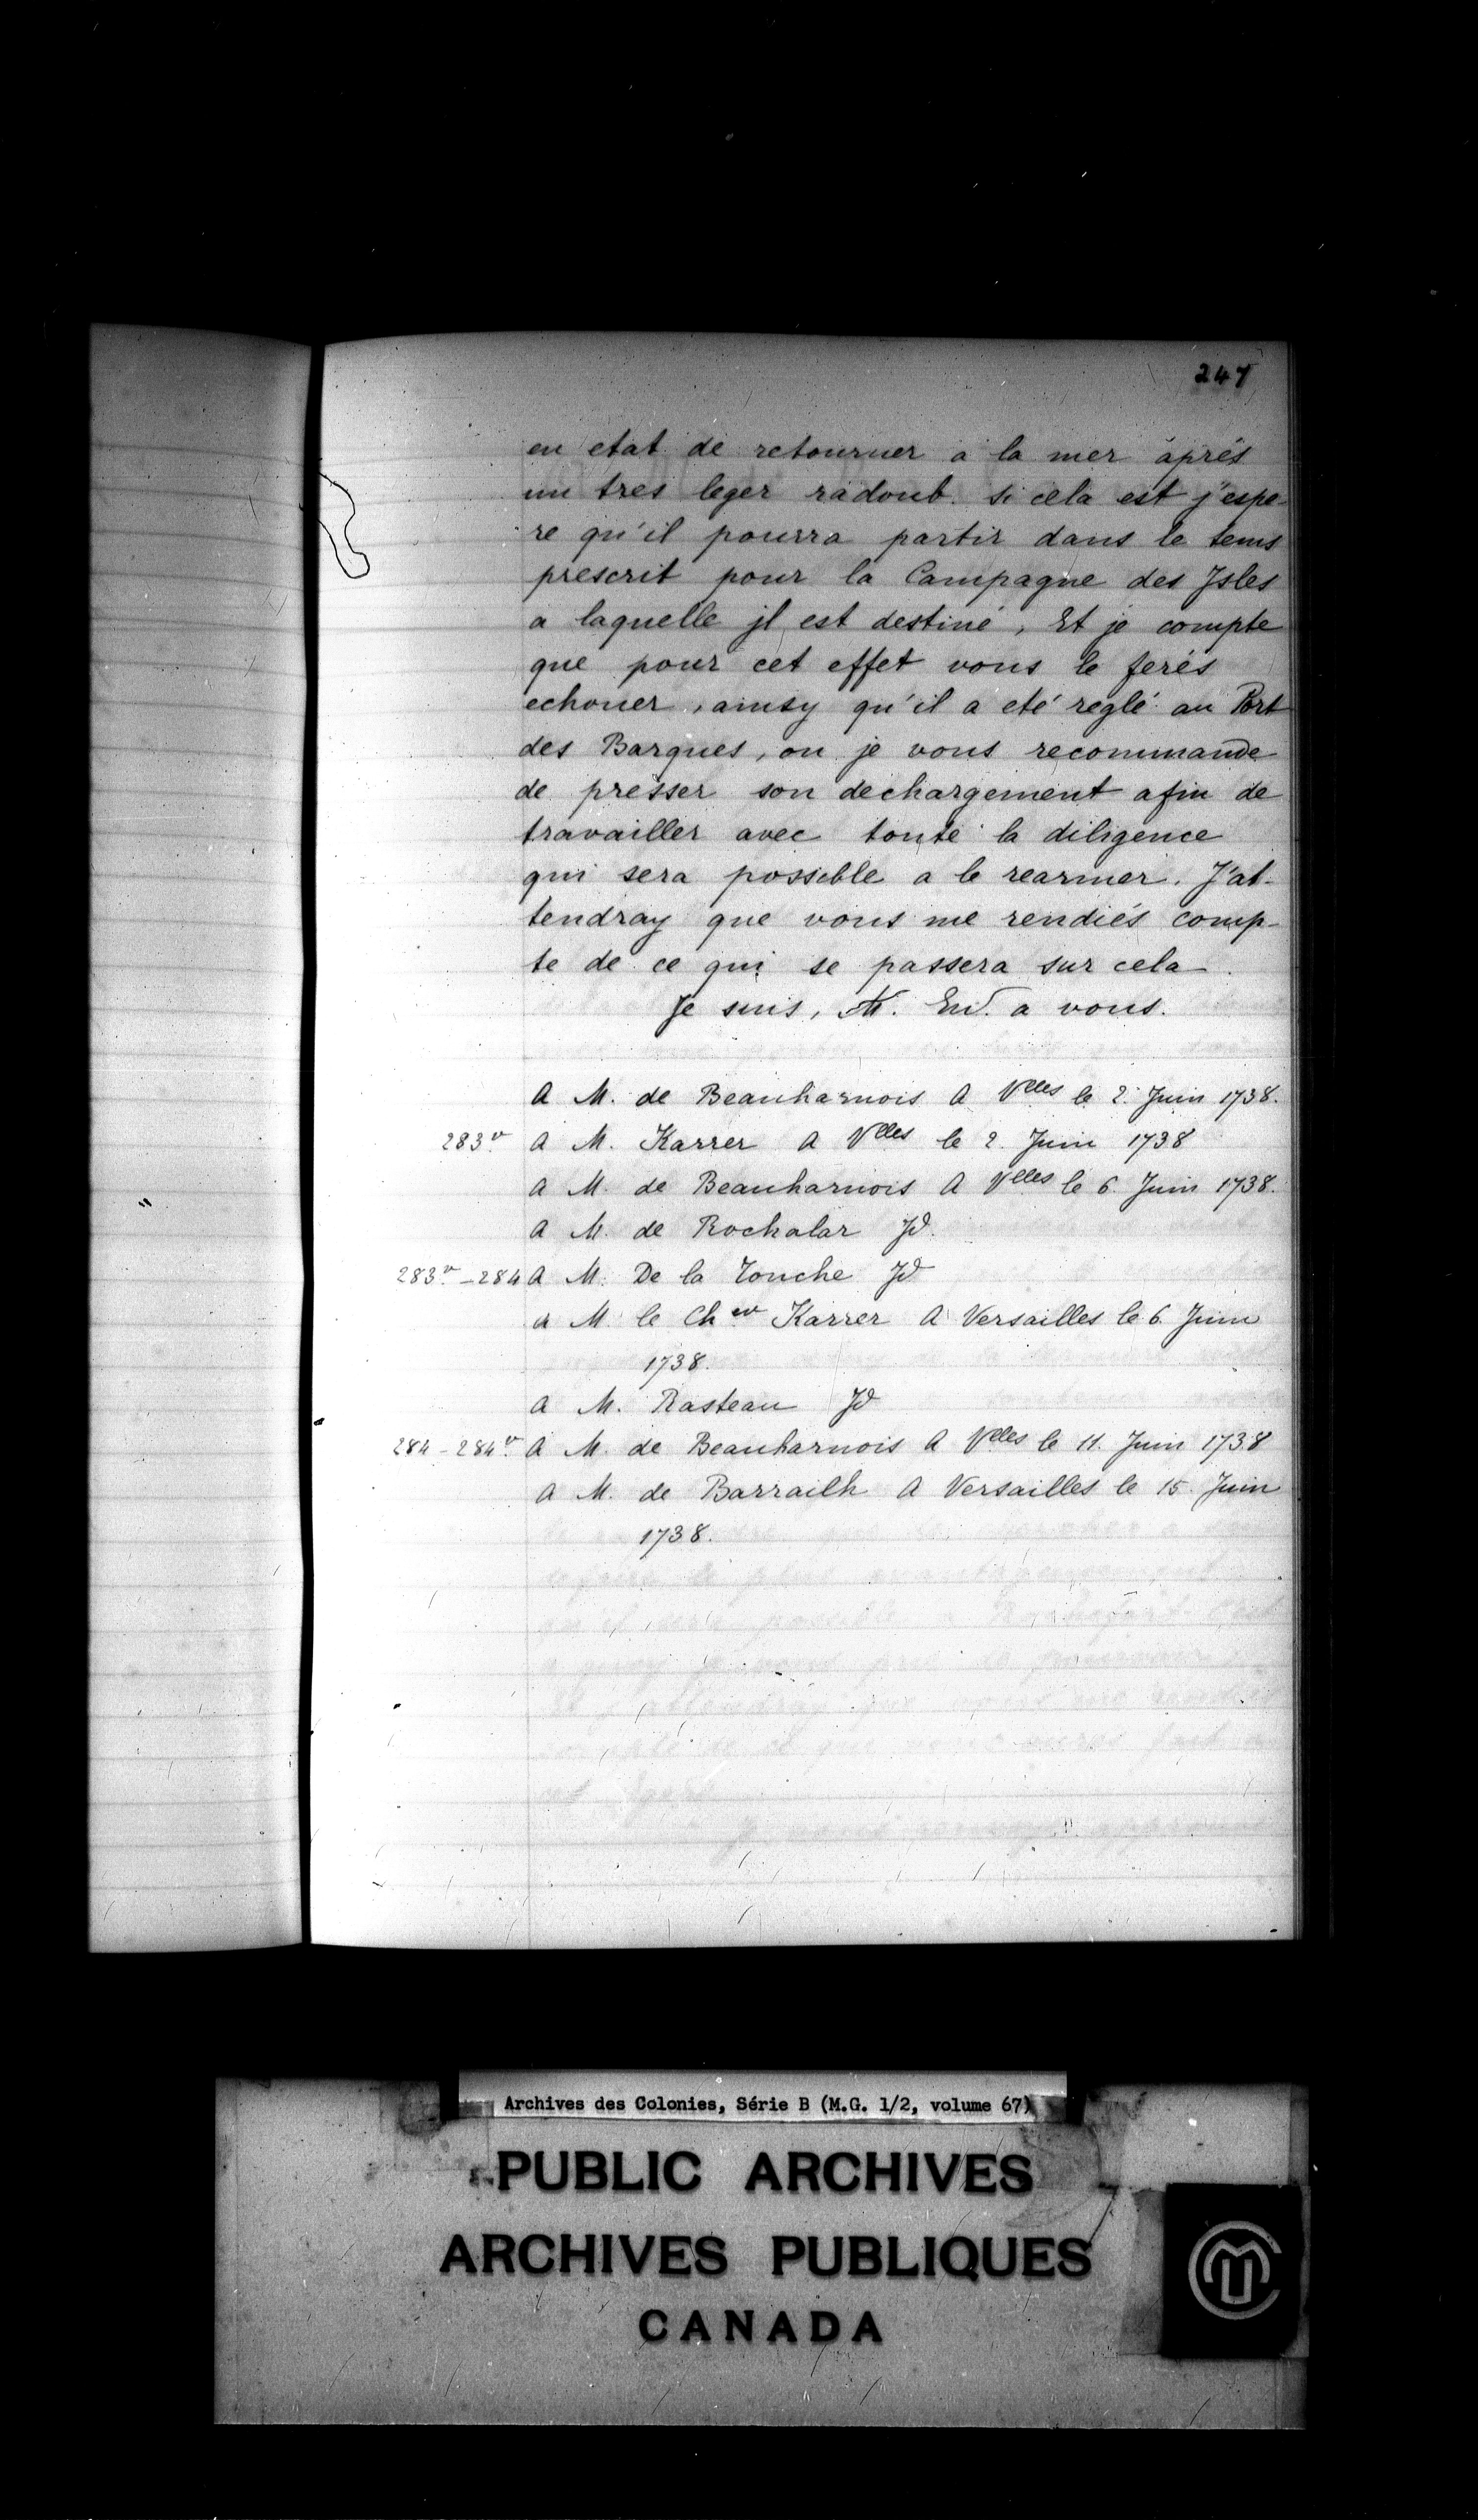 247
en etat de retourner a la mer aprés
un tres leger radoub. si cela est j'espe-
re qu'il pourra partir dans le tems
prescrit pour la Campagne des Jsles
a laquelle jl est destiné, Et je compte
que pour cet effet vous le ferés
echouer, ainsy qu'il a eté reglé au Port
des Barques, ou je vous recommande
de presser son dechargement afin de
travailler avec toute la diligence
qui sera possible a le rearmer. J'at-
tendray que vous me rendiés comp-
te de ce qui se passera sur cela.
Je suis, M. Ent. a vous.
A M. de Beauharnois A Vlles le 2. Juin 1738.
283v. A M. Karrer A Vlles le 2. Juin 1738
A M. de Beauharnois A Vlles le 6. Juin 1738.
A M. de Rochalar Jd.
283v.-284 A M. De la Touche Jd
A M. le Cher Karrer A Versailles le 6. Juin
1738.
A M. Rasteau Jd
284-284v. A M. de Beauharnois A Vlles le 11. Juin 1738
A M. de Barrailh A Versailles le 15. Juin
1738.
Archives des Colonies, Série B (M.G. 1/2, volume 67)
PUBLIC ARCHIVES
ARCHIVES PUBLIQUES
CANADA